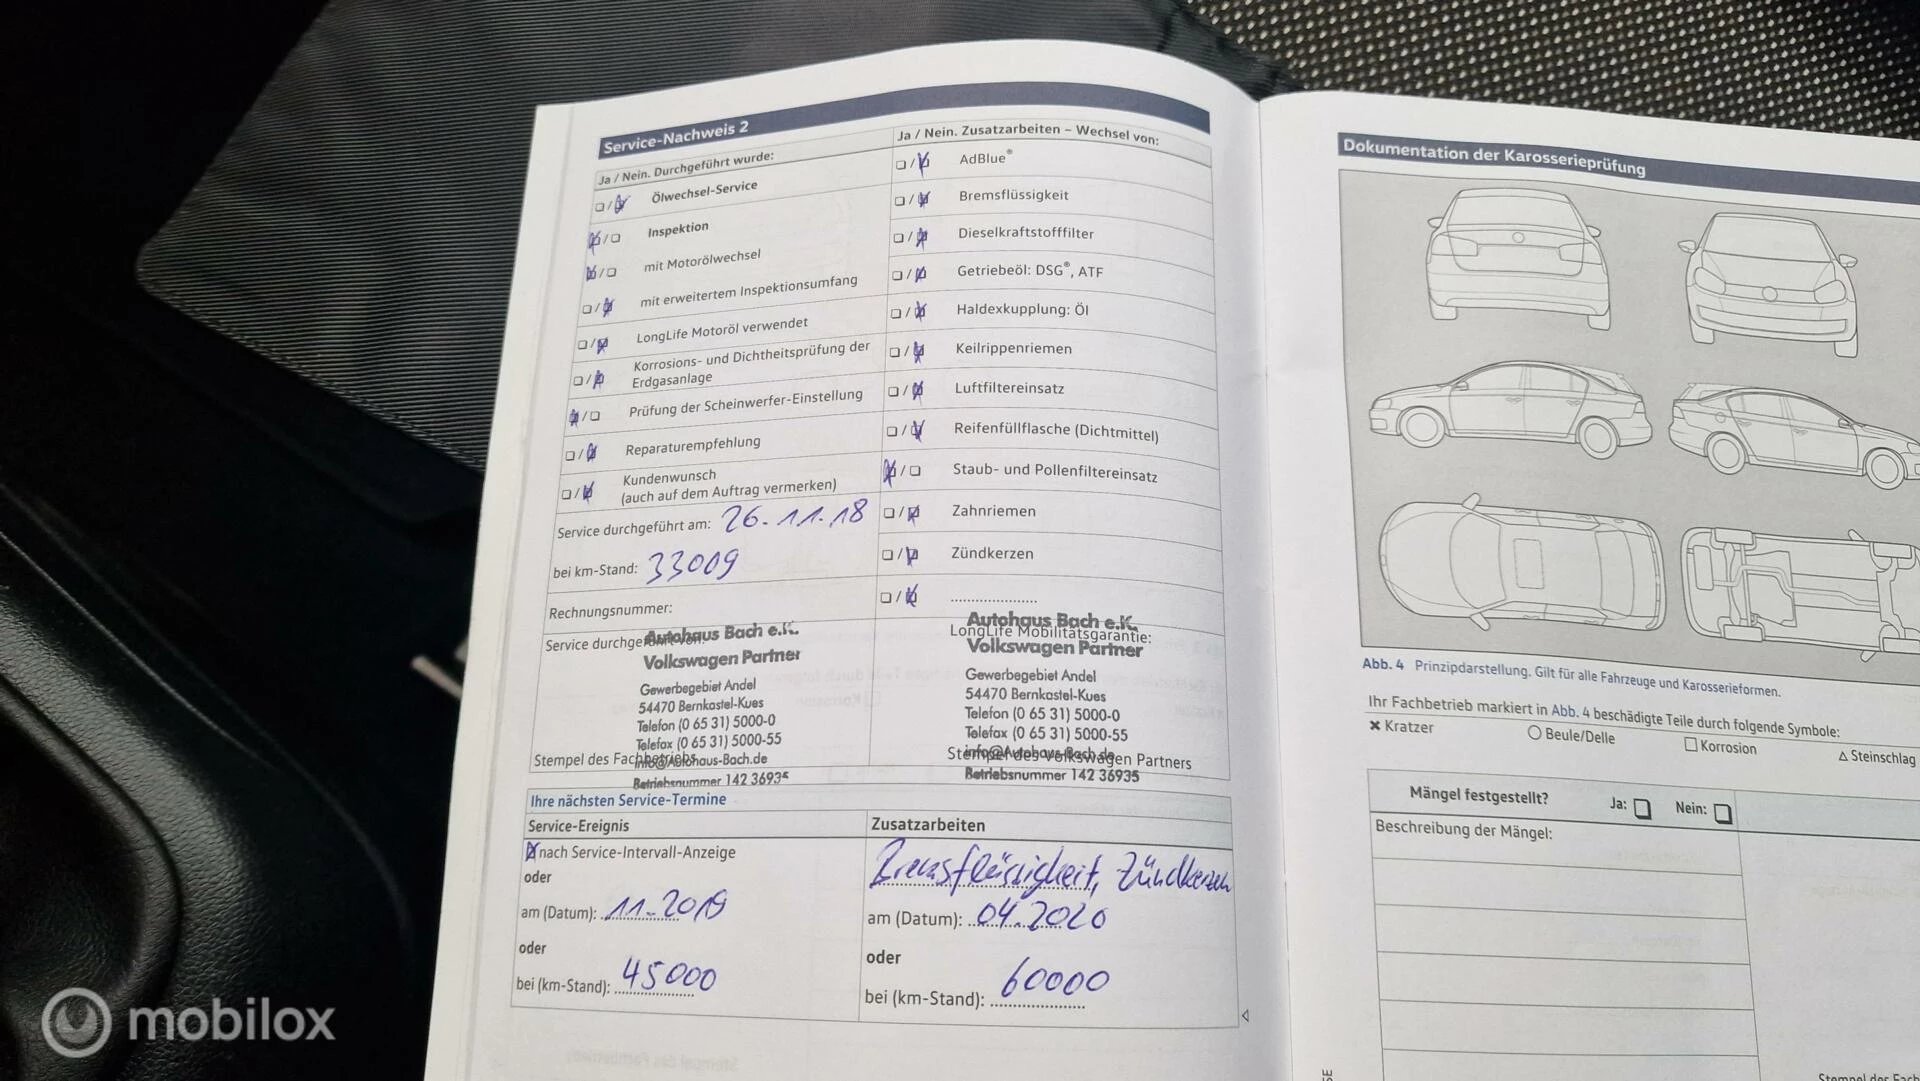 Service-Nachweis 2
Ja / Nein. Durchgeführt wurde:
Ölwechsel-Service
Inspektion
mit Motorölwechsel
mit erweitertem Inspektionsumfang
LongLife Motoröl verwendet
Korrosions- und Dichtheitsprüfung der
Erdgasanlage
Prüfung der Scheinwerfer-Einstellung
Reparaturempfehlung
Kundenwunsch
(auch auf dem Auftrag vermerken)
Service durchgeführt am: 26.11.18
bei km-Stand: 33009
Rechnungsnummer:
Service durchgeführt von:
Autohaus Bach e.K.
Volkswagen Partner
Gewerbegebiet Andel
54470 Bernkastel-Kues
Telefon (0 65 31) 5000-0
Telefax (0 65 31) 5000-55
info@Autohaus-Bach.de
Stempel des Fachbetriebs
Betriebsnummer 142 36935
Ja / Nein. Zusatzarbeiten – Wechsel von:
AdBlue®
Bremsflüssigkeit
Dieselkraftstofffilter
Getriebeöl: DSG®, ATF
Haldexkupplung: Öl
Keilrippenriemen
Luftfiltereinsatz
Reifenfüllflasche (Dichtmittel)
Staub- und Pollenfiltereinsatz
Zahnriemen
Zündkerzen
Autohaus Bach e.K.
LongLife Mobilitätsgarantie:
Volkswagen Partner
Gewerbegebiet Andel
54470 Bernkastel-Kues
Telefon (0 65 31) 5000-0
Telefax (0 65 31) 5000-55
info@Autohaus-Bach.de
Stempel des Volkswagen Partners
Betriebsnummer 142 36935
Ihre nächsten Service-Termine
Service-Ereignis
nach Service-Intervall-Anzeige
oder
am (Datum): 11.2019
oder
bei (km-Stand): 45000
Zusatzarbeiten
Bremsflüssigkeit, Zündkerzen
am (Datum): 04.2020
oder
bei (km-Stand): 60000
Dokumentation der Karosserieprüfung
Abb. 4 Prinzipdarstellung. Gilt für alle Fahrzeuge und Karosserieformen.
Ihr Fachbetrieb markiert in Abb. 4 beschädigte Teile durch folgende Symbole:
Kratzer
Beule/Delle
Korrosion
Steinschlag
Mängel festgestellt? Ja: Nein:
Beschreibung der Mängel:
mobilox